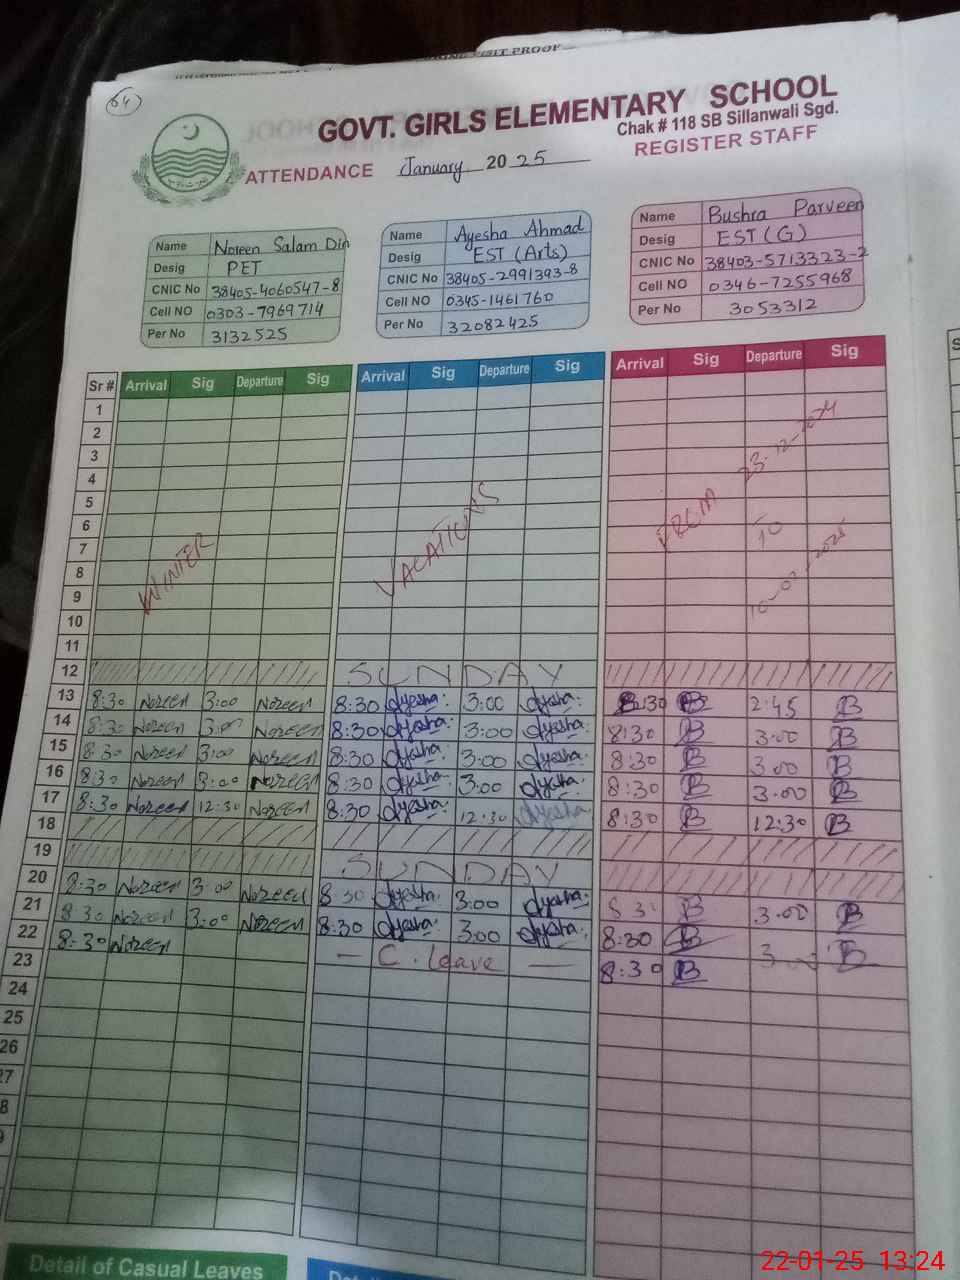 64
GOVT. GIRLS ELEMENTARY SCHOOL
Chak # 118 SB Sillanwali Sgd.
ATTENDANCE January 2025 REGISTER STAFF
Name Noreen Salam Din
Desig PET
CNIC No 38405-4060547-8
Cell NO 0303-7969714
Per No 3132525
Name Ayesha Ahmad
Desig EST (Arts)
CNIC No 38405-2991393-8
Cell NO 0345-1461760
Per No 32082425
Name Bushra Parveen
Desig EST (G)
CNIC No 38403-5713323-2
Cell NO 0346-7255968
Per No 3053312
Sr # Arrival Sig Departure Sig Arrival Sig Departure Sig Arrival Sig Departure Sig
1
2
3
4
5
6
7
8
9
10
11
WINTER VACATIONS FROM 23-12-2024 TO 10-01-2025
12 SUNDAY
13 8:30 Noreen 3:00 Noreen 8:30 Ayesha 3:00 Ayesha 8:30 B 2:45 B
14 8:30 Noreen 3:00 Noreen 8:30 Ayesha 3:00 Ayesha 8:30 B 3:00 B
15 8:30 Noreen 3:00 Noreen 8:30 Ayesha 3:00 Ayesha 8:30 B 3:00 B
16 8:30 Noreen 3:00 Noreen 8:30 Ayesha 3:00 Ayesha 8:30 B 3:00 B
17 8:30 Noreen 12:30 Noreen 8:30 Ayesha 12:30 Ayesha 8:30 B 12:30 B
18
19 SUNDAY
20 8:30 Noreen 3:00 Noreen 8:30 Ayesha 3:00 Ayesha 8:30 B 3:00 B
21 8:30 Noreen 3:00 Noreen 8:30 Ayesha 3:00 Ayesha 8:30 B 3:00 B
22 8:30 Noreen — C. leave — 8:30 B
23
24
25
26
27
Detail of Casual Leaves
22-01-25 13:24